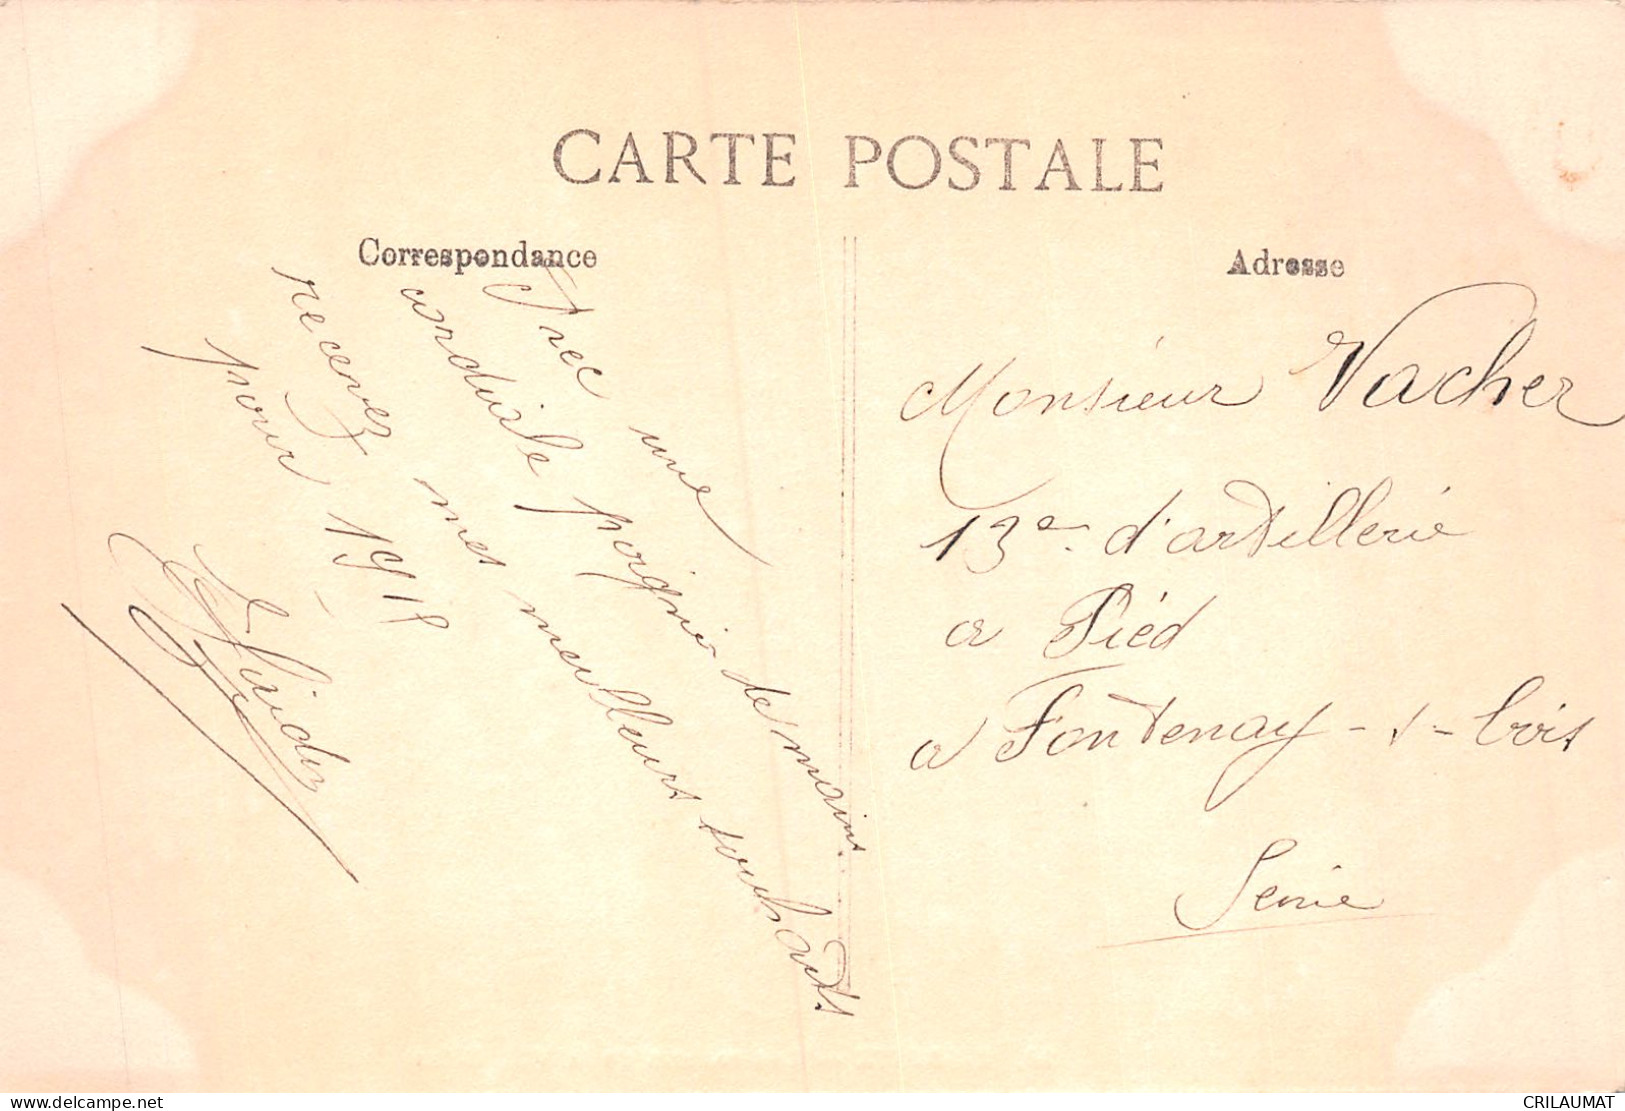 CARTE POSTALE
Correspondance
Avec une
cordiale poignée de mains
recevez mes meilleurs souhaits
pour 1918
Adresse
Monsieur Vacher
13e d'artillerie
a Pied
a Fontenay-s-bois
Seine
CRILAUMAT